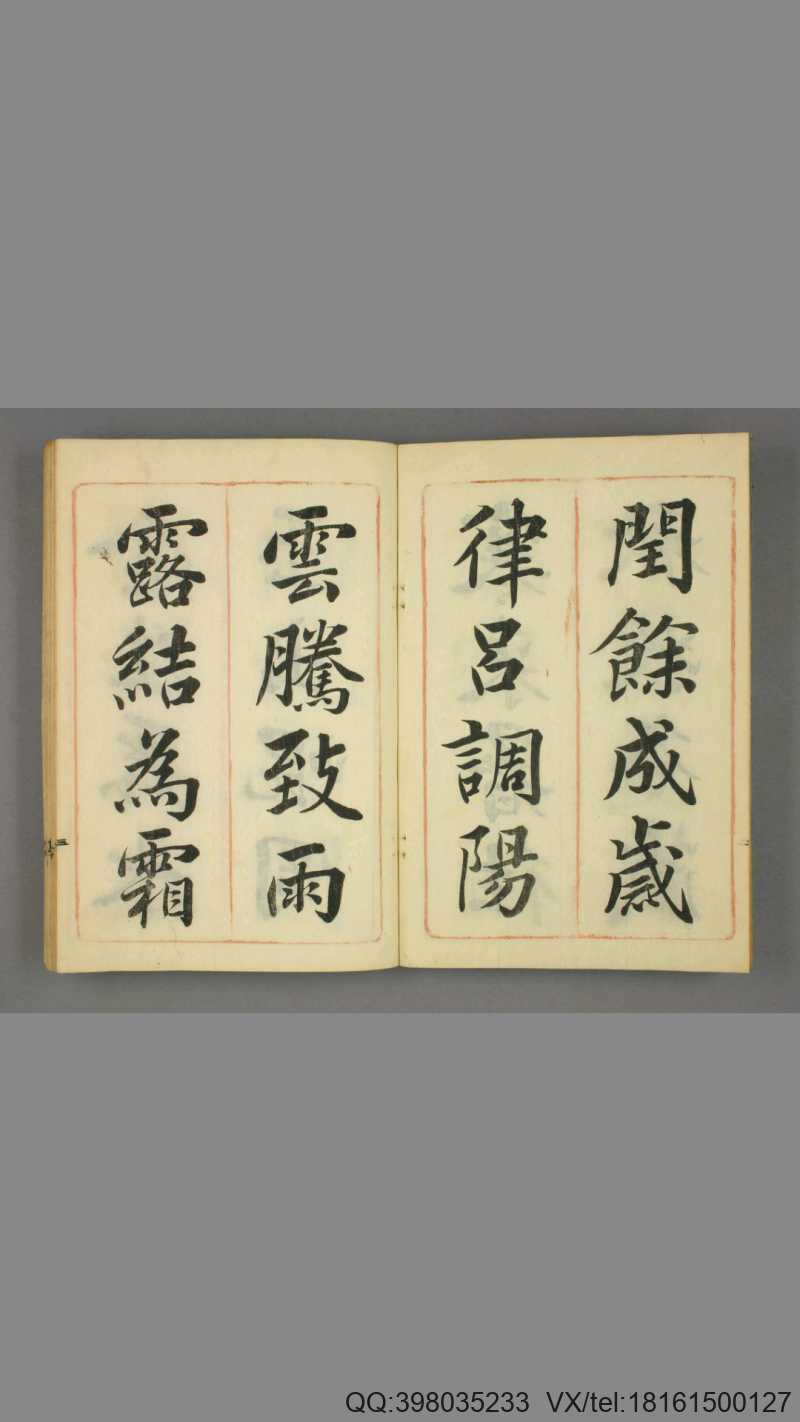 閏餘成歲
律呂調陽
雲騰致雨
露結為霜
三
QQ:398035233 VX/tel:18161500127